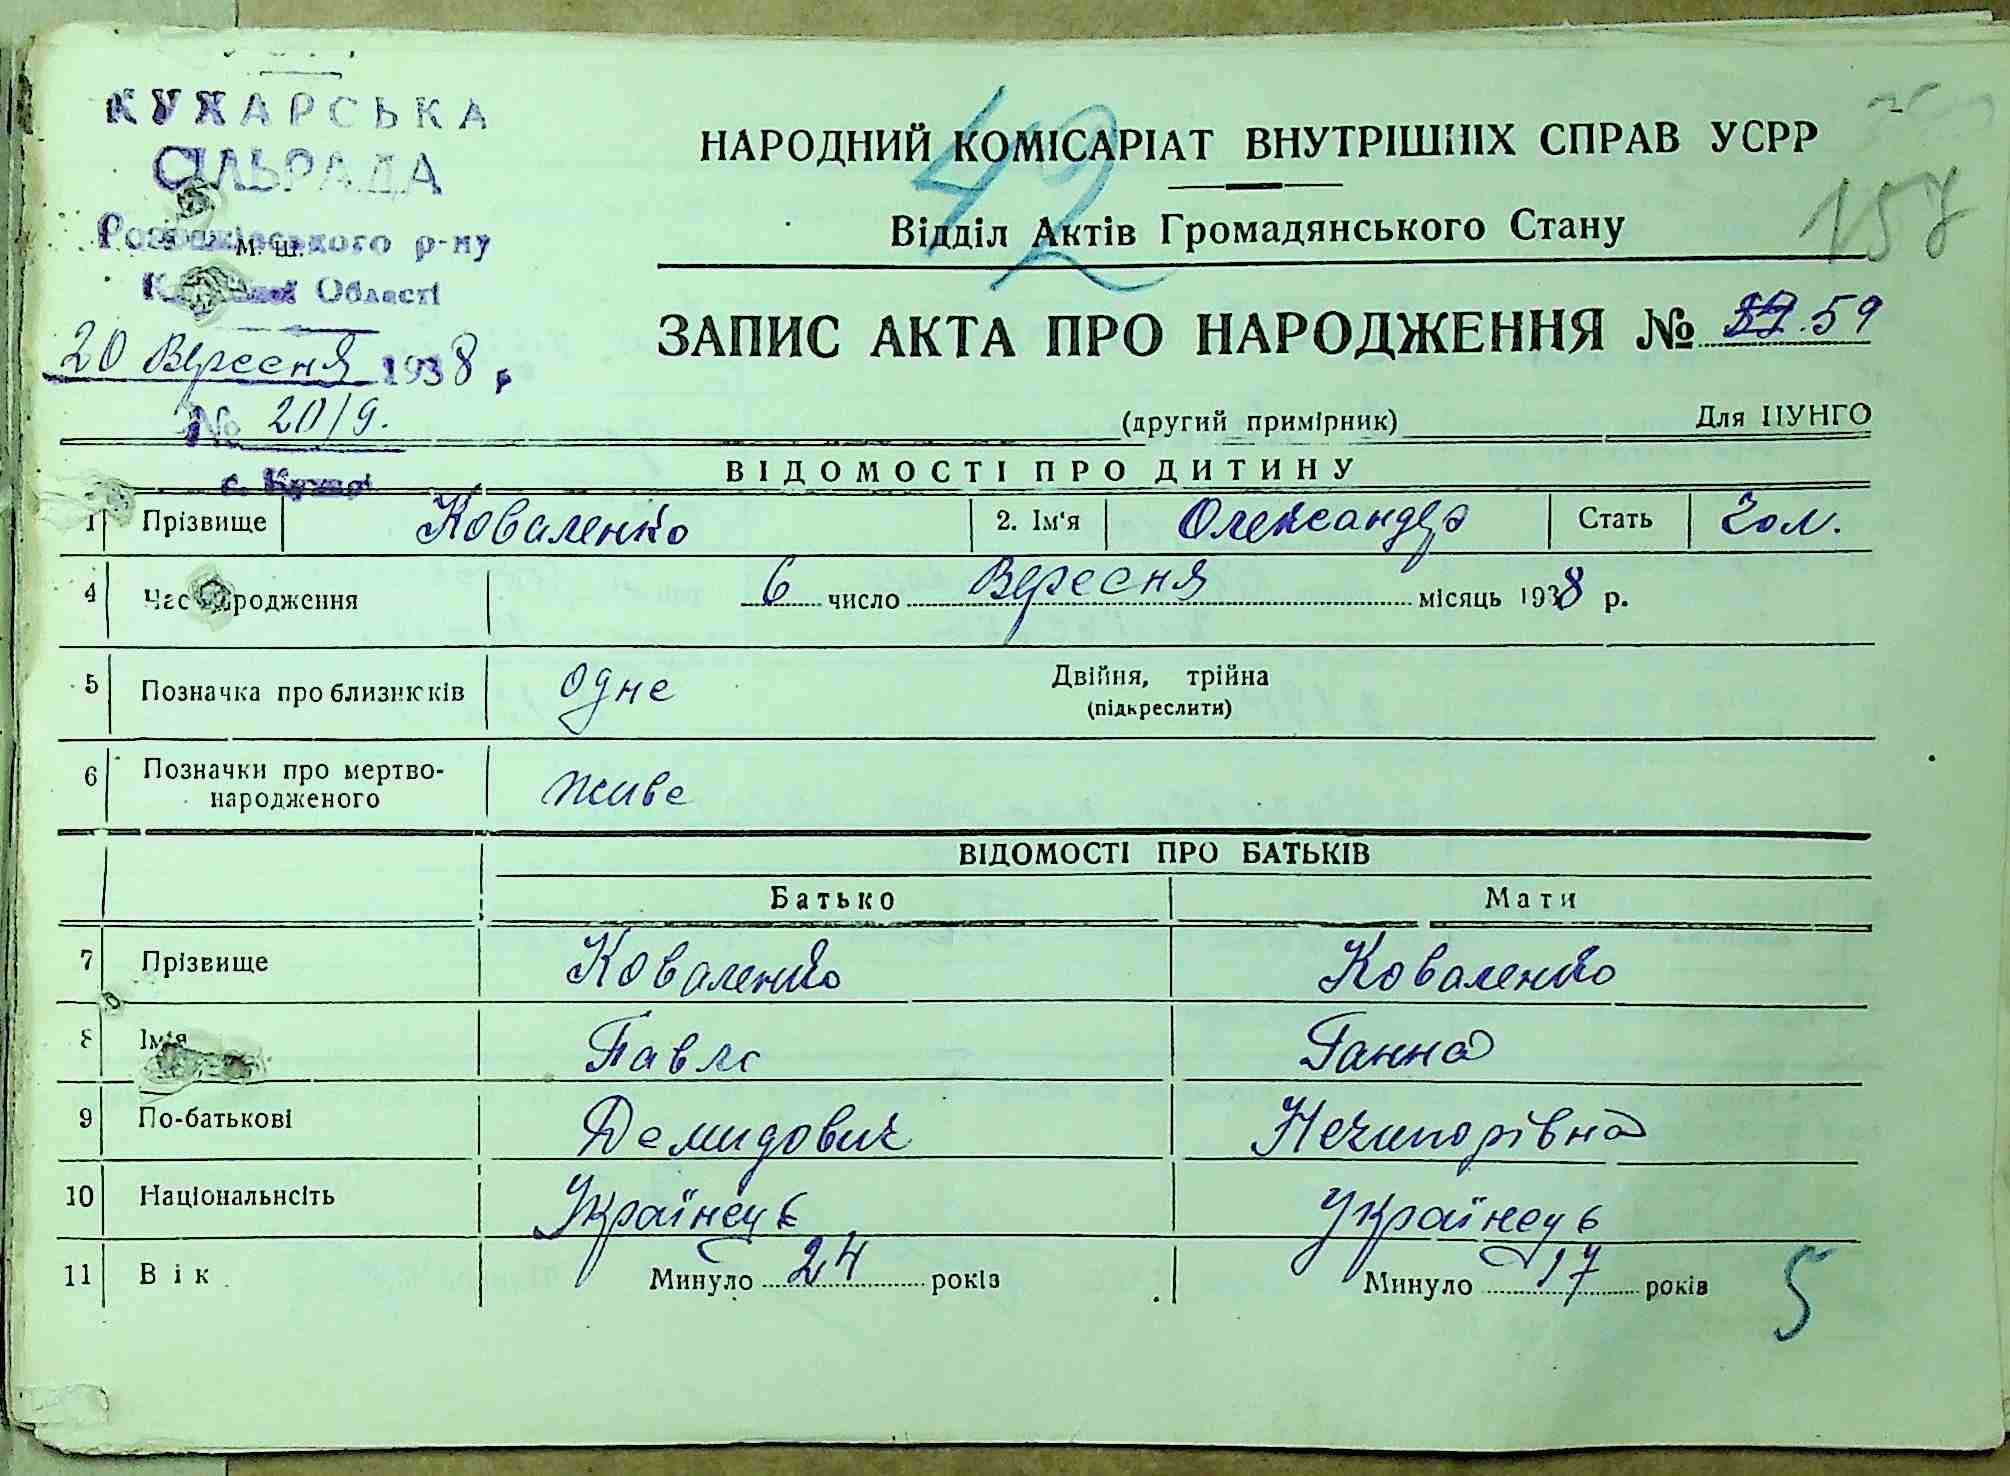 КУХАРСЬКА
СІЛЬРАДА
р-ну
М. Ш.
Області
20 Вересня 1938 р
№ 20/9.
42
157
НАРОДНИЙ КОМІСАРІАТ ВНУТРІШНІХ СПРАВ УСРР
Відділ Актів Громадянського Стану
ЗАПИС АКТА ПРО НАРОДЖЕННЯ № 59
(другий примірник) Для ЦУНГО
ВІДОМОСТІ ПРО ДИТИНУ
1 Прізвище Коваленко 2. Ім'я Олександр Стать Чол.
4 Час народження 6 число Вересня місяць 1938 р.
5 Позначка про близнюків одне Двійня, трійна
(підкреслити)
6 Позначки про мертво-
народженого живе
ВІДОМОСТІ ПРО БАТЬКІВ
Батько Мати
7 Прізвище Коваленко Коваленко
8 Ім'я Павло Ганна
9 По-батькові Демидович Нечипорівна
10 Національнсіть Українець Українець
11 Вік Минуло 24 років Минуло 17 років
5